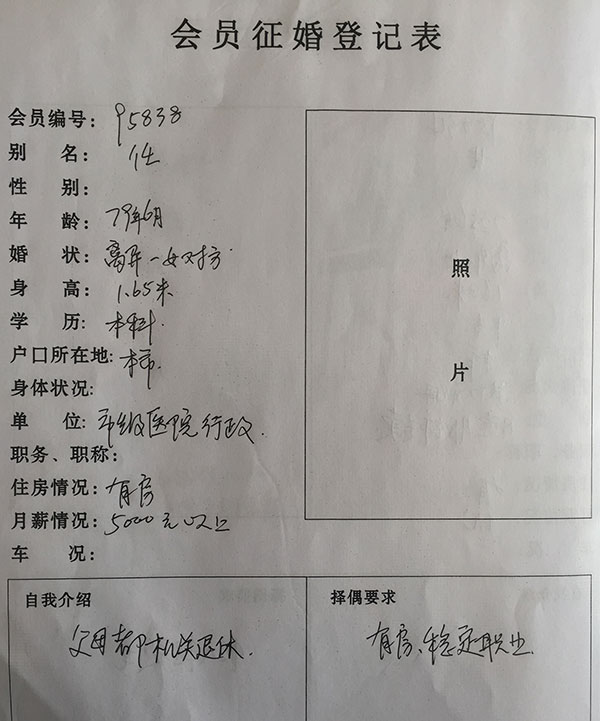 会员征婚登记表
会员编号: 95838
别 名: 任
性 别:
年 龄: 79年6月
婚 状: 离异一女对方
身 高: 1.65米
学 历: 本科.
户口所在地: 本市.
身体状况:
单 位: 市级医院行政.
职务、职称:
住房情况: 有房
月薪情况: 5000元以上
车 况:
照
片
自我介绍
父母都机关退休.
择偶要求
有房、稳定职业.